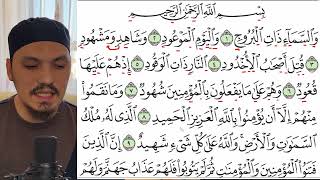 بِسْمِ اللَّهِ الرَّحْمَٰنِ الرَّحِيمِ
وَالسَّمَاءِ ذَاتِ الْبُرُوجِ ١ وَالْيَوْمِ الْمَوْعُودِ ٢ وَشَاهِدٍ وَمَشْهُودٍ
٣ قُتِلَ أَصْحَابُ الْأُخْدُودِ ٤ النَّارِ ذَاتِ الْوَقُودِ ٥ إِذْ هُمْ عَلَيْهَا
قُعُودٌ ٦ وَهُمْ عَلَىٰ مَا يَفْعَلُونَ بِالْمُؤْمِنِينَ شُهُودٌ ٧ وَمَا نَقَمُوا
مِنْهُمْ إِلَّا أَنْ يُؤْمِنُوا بِاللَّهِ الْعَزِيزِ الْحَمِيدِ ٨ الَّذِي لَهُ مُلْكُ
السَّمَٰوَاتِ وَالْأَرْضِ وَاللَّهُ عَلَىٰ كُلِّ شَيْءٍ شَهِيدٌ ٩ إِنَّ الَّذِينَ
فَتَنُوا الْمُؤْمِنِينَ وَالْمُؤْمِنَاتِ ثُمَّ لَمْ يَتُوبُوا فَلَهُمْ عَذَابُ جَهَنَّمَ وَلَهُمْ